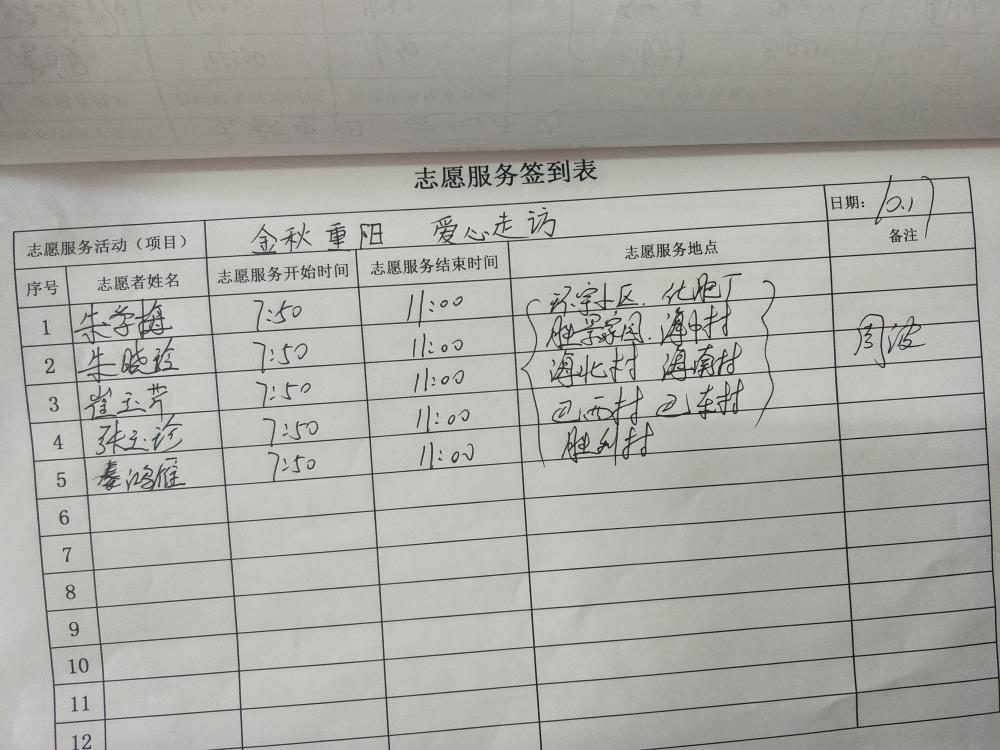 志愿服务签到表
志愿服务活动（项目） 金秋重阳 爱心走访 日期： 10.17
序号 志愿者姓名 志愿服务开始时间 志愿服务结束时间 志愿服务地点 备注
1 朱学梅 7:50 11:00 小区. 化肥厂
2 朱晓玲 7:50 11:00 胜 家园. 海中村 周波
3 崔玉芹 7:50 11:00 海北村 海南村
4 张玉论 7:50 11:00 巴西村 巴东村
5 秦鸿雁 7:50 11:00 胜利村
6
7
8
9
10
11
12